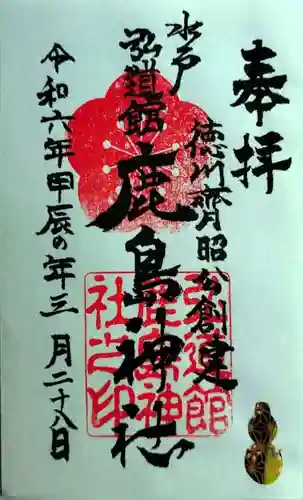 奉拝
徳川斉昭公創建
水戸
弘道館
鹿島神社
令和六年甲辰の年三月二十八日
弘道館
鹿島神
社之印